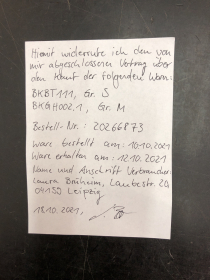 Hiermit widerrufe ich den von
mir abgeschlossenen Vertrag über
den Kauf der folgenden Waren:
BKBT111, Gr. S
BKGH002.1, Gr. M
Bestell-Nr.: 20266873
Ware bestellt am: 10.10.2021
Ware erhalten am: 12.10.2021
Name und Anschrift Verbraucher:
Laura Brüheim, Laubestr. 20,
04159 Leipzig
18.10.2021,